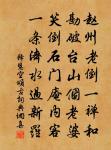 赵州老倒一禅和
勘破台山个老婆
笑倒石门庵内客
一条济水过新罗
释慧空颂古词典调玄